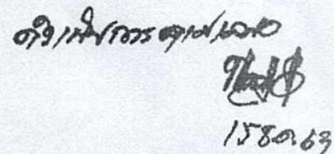 ดำเนินการตามเสนอ
15 ธ.ค. 63